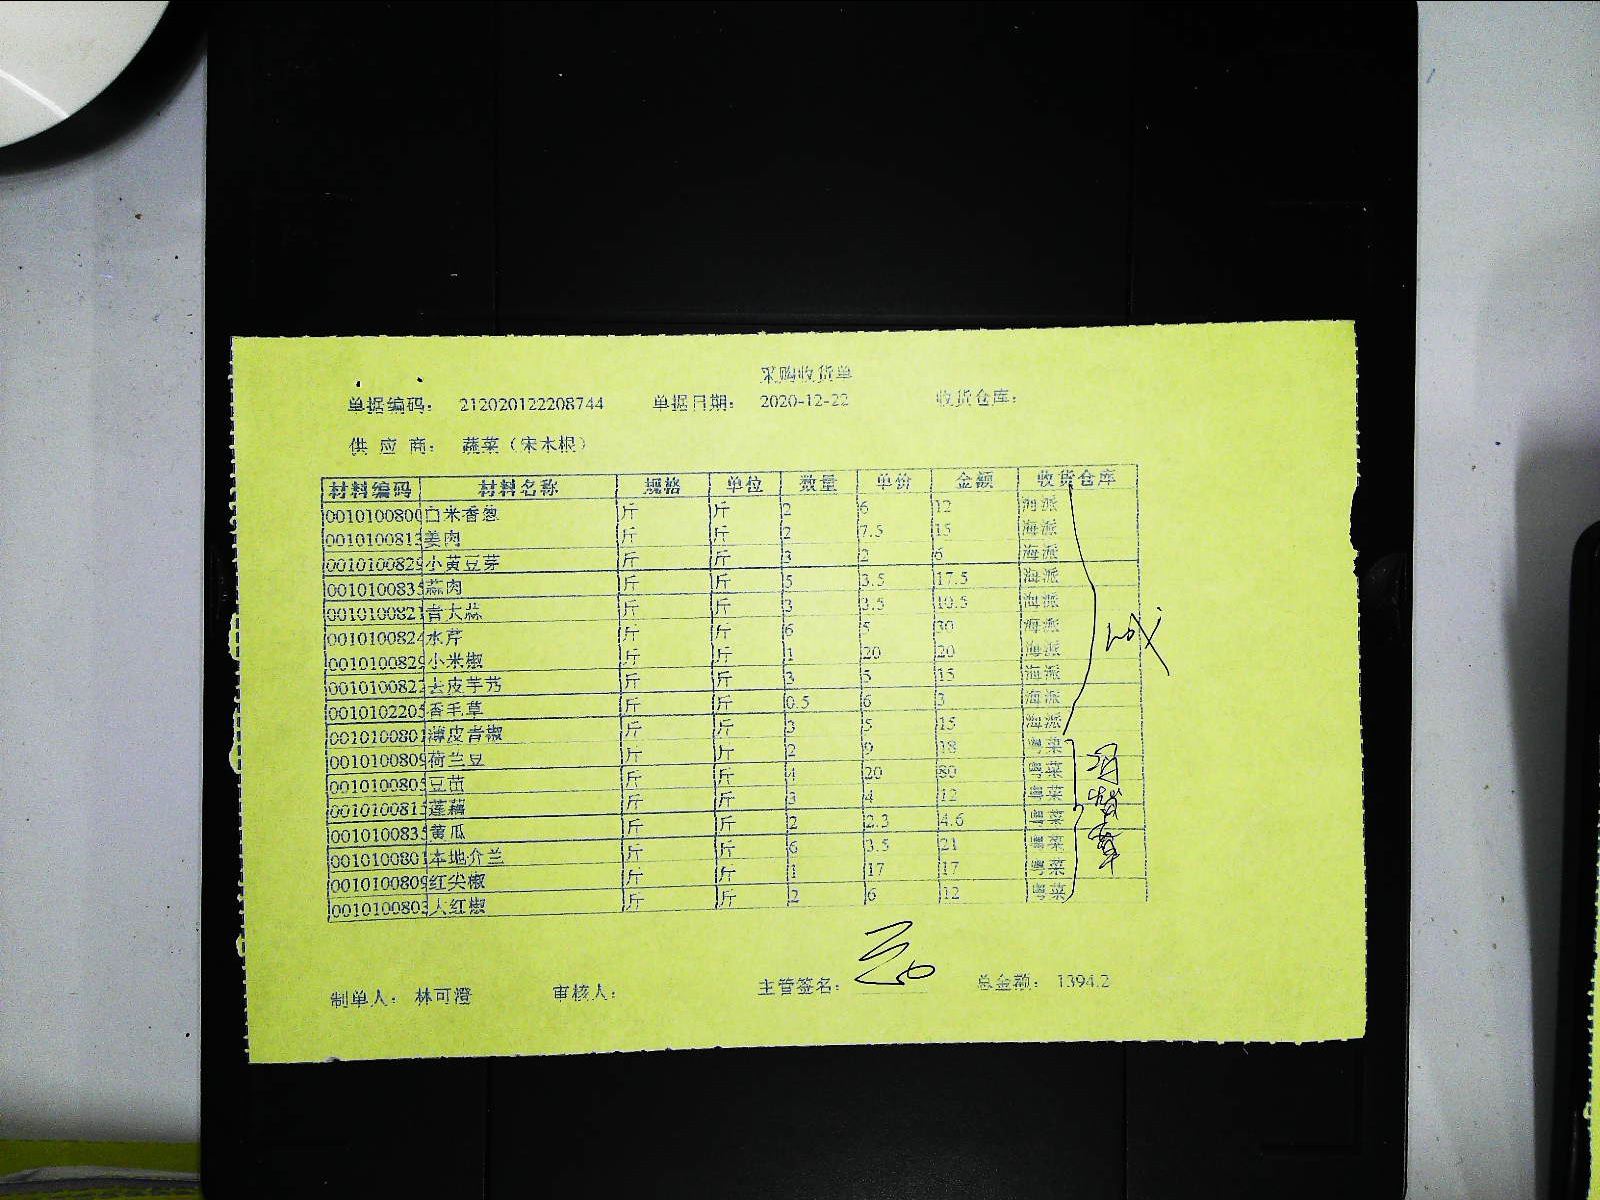 采购收货单
单据编码： 212020122208744 单据日期： 2020-12-22 收货仓库：
供 应 商： 蔬菜（宋木根）
材料编码 材料名称 规格 单位 数量 单价 金额 收货仓库
0010100800 白米香葱 斤 斤 2 6 12 海派
001010081 姜肉 斤 斤 2 7.5 15 海派
001010082 小黄豆芽 斤 斤 3 2 6 海派
001010083 蒜肉 斤 斤 5 3.5 17.5 海派
001010082 青大蒜 斤 斤 3 3.5 10.5 海派
001010082 水芹 斤 斤 6 5 30 海派
001010082 小米椒 斤 斤 1 20 20 海派
001010082 去皮芋艿 斤 斤 3 5 15 海派
001010220 香毛草 斤 斤 0.5 6 3 海派
001010080 薄皮青椒 斤 斤 3 5 15 海派
001010080 荷兰豆 斤 斤 2 9 18 粤菜
001010080 豆苗 斤 斤 4 20 80 粤菜
001010081 莲藕 斤 斤 3 4 12 粤菜
001010083 黄瓜 斤 斤 2 2.3 4.6 粤菜
001010080 本地介兰 斤 斤 6 3.5 21 粤菜
001010080 红尖椒 斤 斤 1 17 17 粤菜
001010080 大红椒 斤 斤 2 6 12 粤菜
制单人： 林可澄 审核人： 主管签名： 总金额： 1394.2